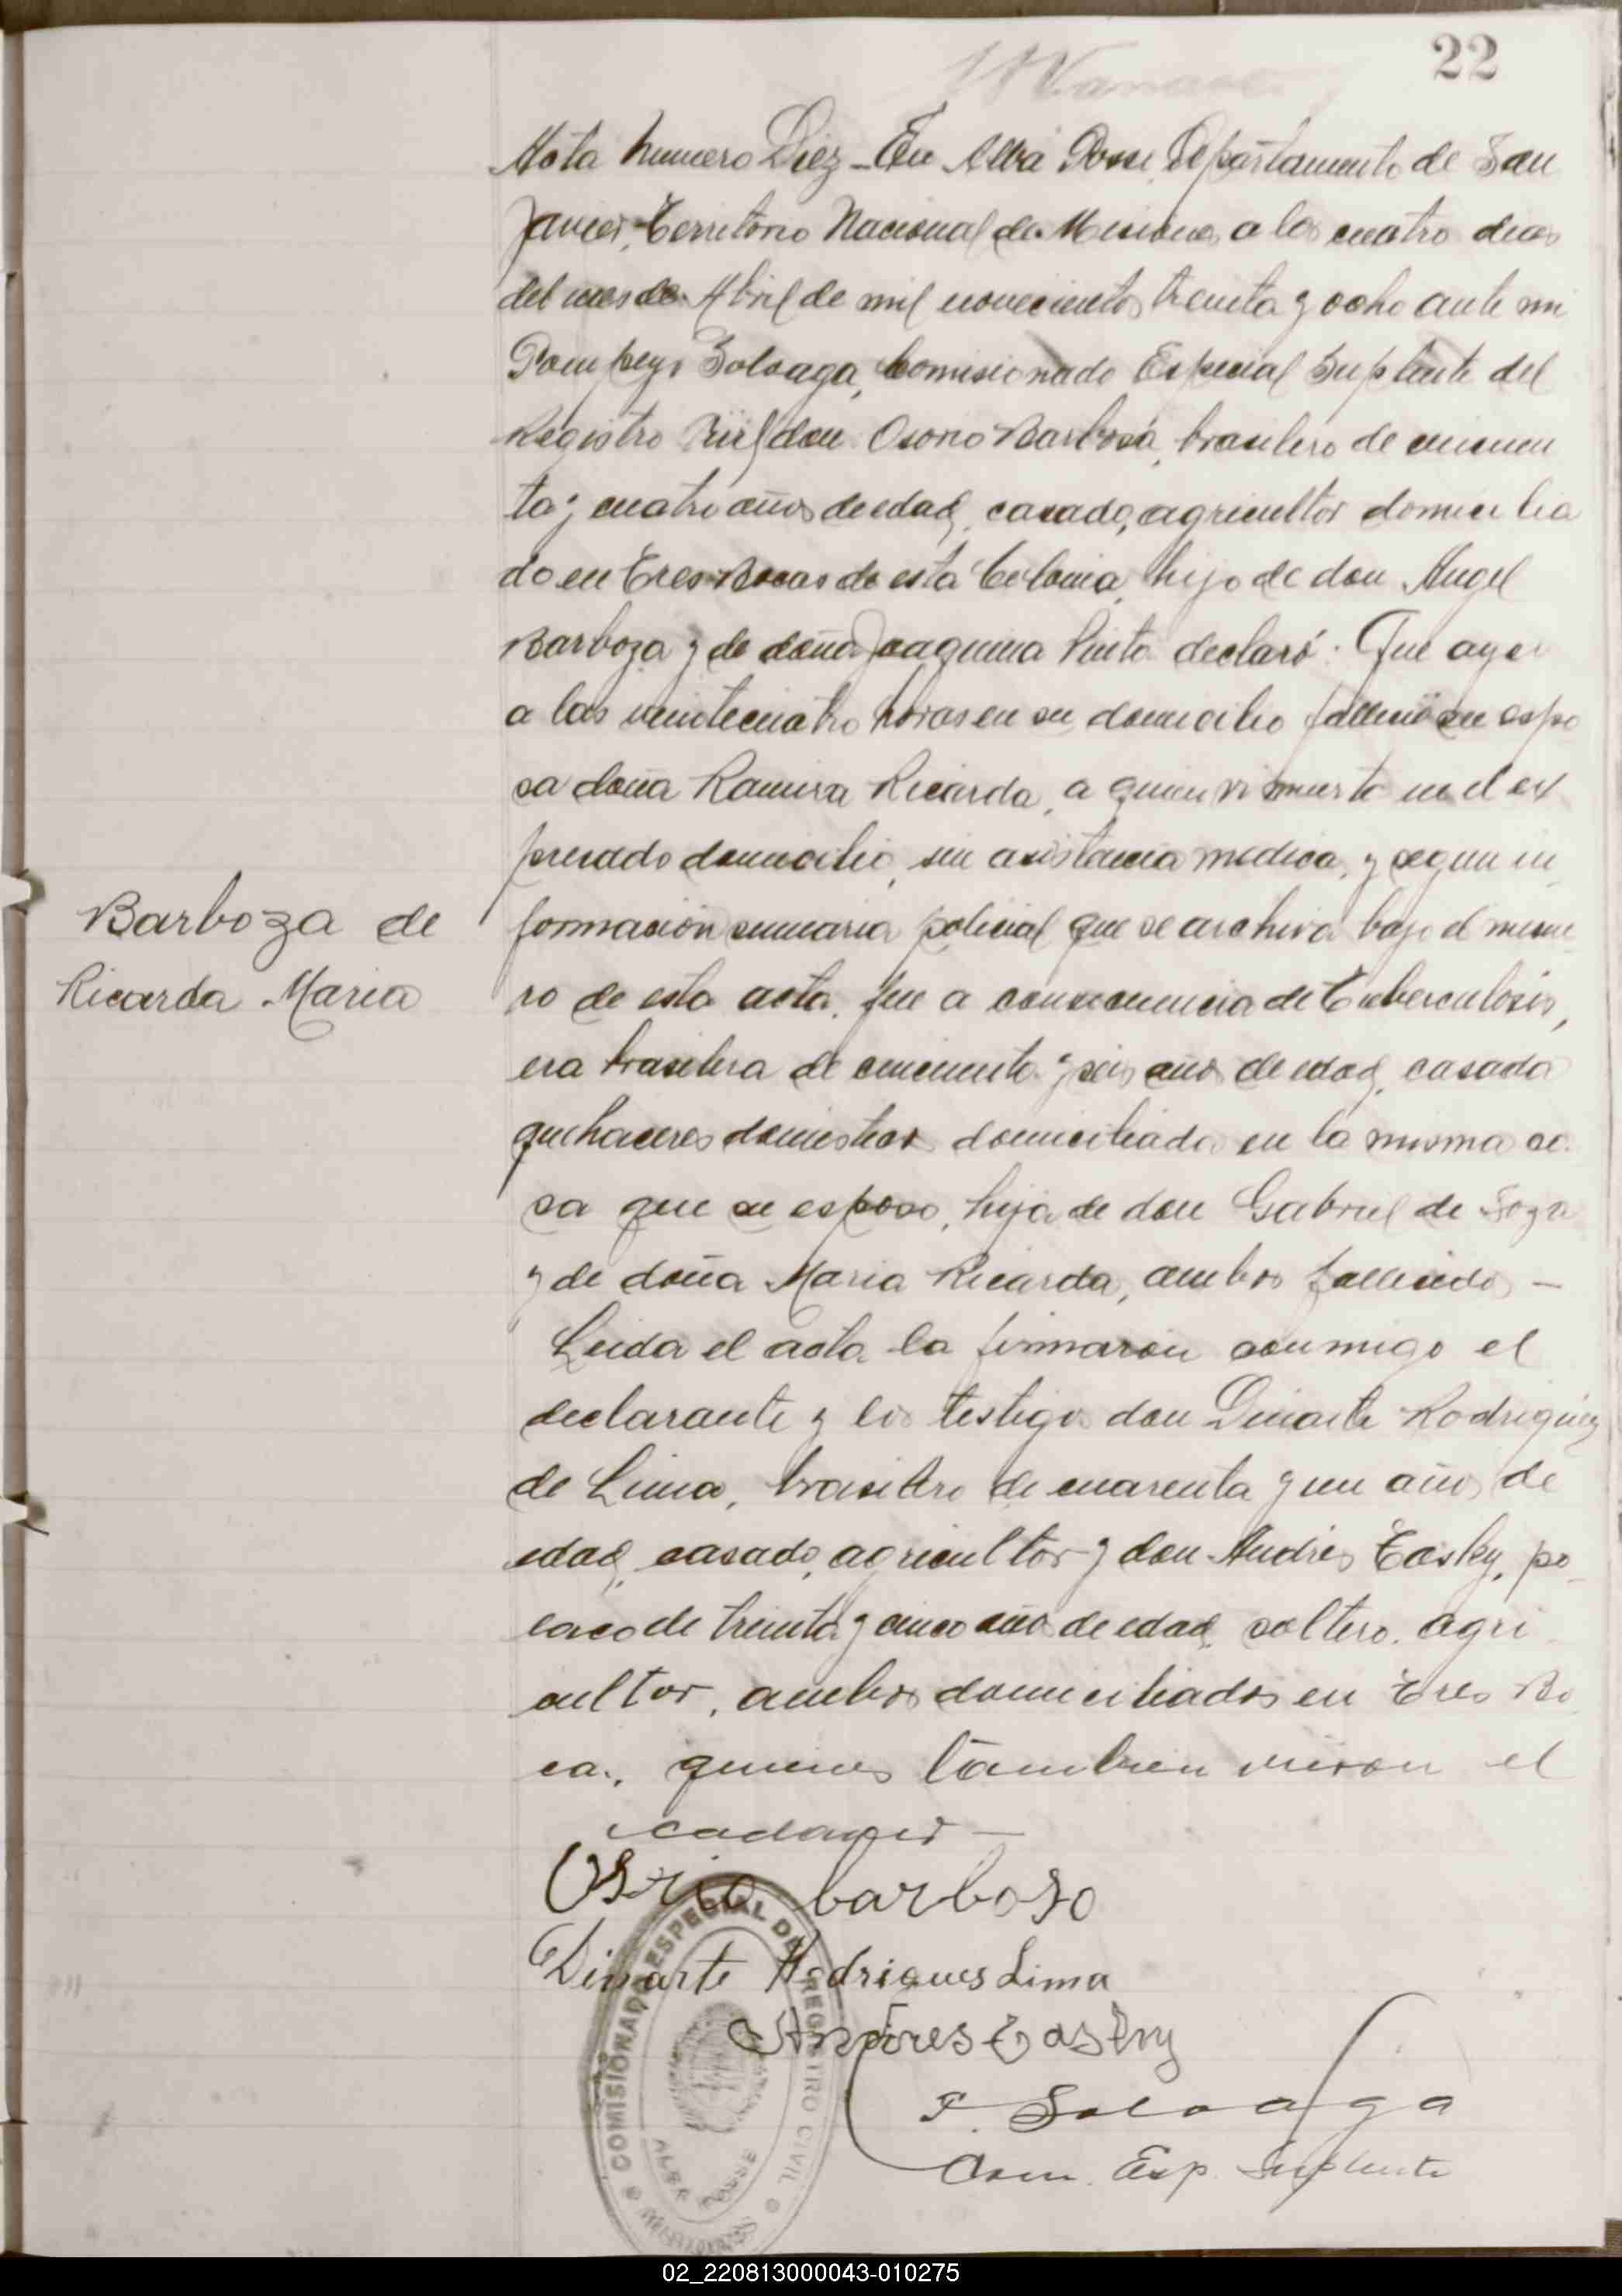 22
Acta numero Diez - En Alba Posse, Departamento de San
Javier, Territorio Nacional de Misiones, a los cuatro dias
del mes de Abril de mil novecientos treinta y ocho ante mi
Pompeyo Soloaga, Comisionado Especial Suplente del
Registro Civil don Osorio Barbosa, brasilero de cincuen
ta y cuatro años de edad, casado, agricultor domicilia
do en Tres Bocas de esta Colonia, hijo de don Angel
Barboza y de doña Joaquina Pinto declaró: Que ayer
a las veinticuatro horas en su domicilio falleció su espo
sa doña Ramira Ricarda, a quien vi muerta en el ex
presado domicilio, sin asistencia medica, y segun in
formación sumaria policial que se archiva bajo el nume
Barboza de
Ricarda Maria
ro de esta acta, fue a consecuencia de Tuberculósis,
era brasilera de cincuenta y seis años de edad, casada
quehaceres domesticos domiciliada en la misma ca
sa que su esposo, hija de don Gabriel de Soza
y de doña Maria Ricarda, ambos fallecidos -
Leida el acta la firmaron conmigo el
declarante y los testigos don Dinarte Rodriguez
de Lima, brasilero de cuarenta y un años de
edad, casado, agricultor y don Andrés Tasky, po
laco de treinta y cinco años de edad, soltero, agri
cultor, ambos domiciliados en Tres Bo
cas, quienes tambien vieron el
cadaver -
Osrio barboso
Dinarte Rodrigues Lima
Andres
P. Soloaga
Com. Esp. Suplente
COMISIONADO ESPECIAL DE REGISTRO CIVIL
ALBA POSSE
MISIONES
02_220813000043-010275